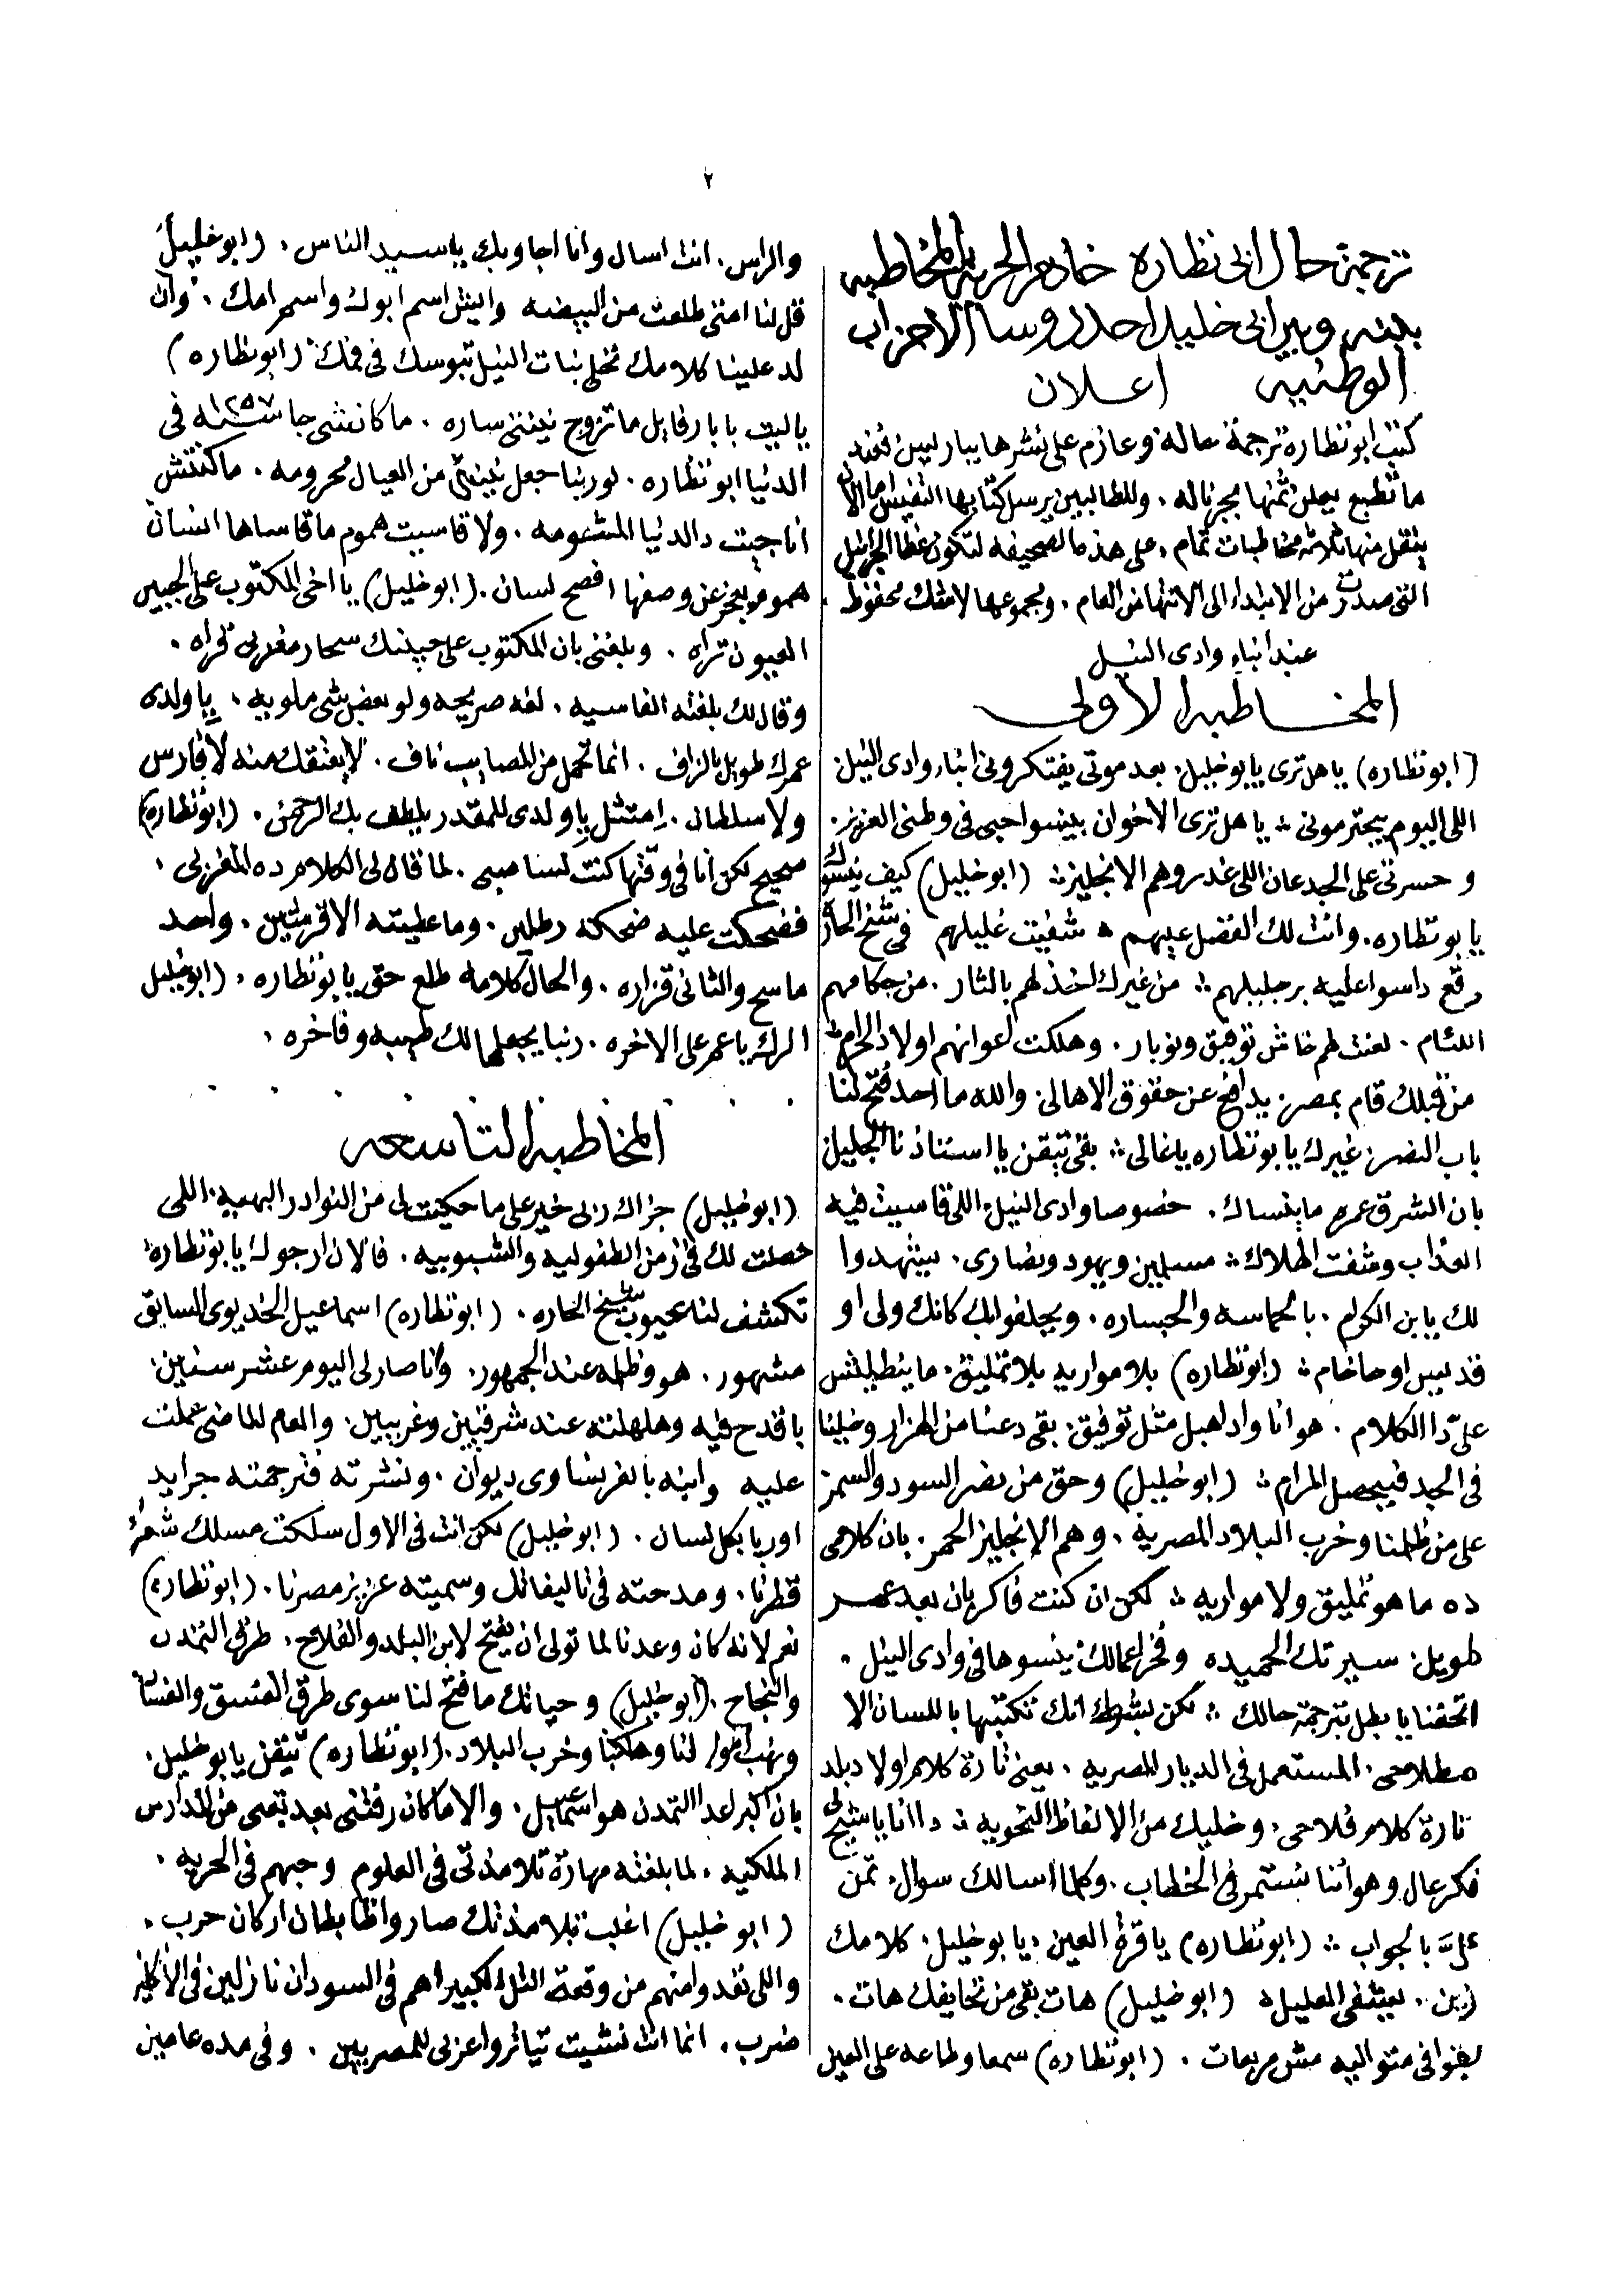 ٢
ترجمة حال ابى نظاره خادم الحريه بالمخاطبه
بينه وبين ابى خليل احد روسا الاحزاب
الوطنيه اعلان
كتب ابو نظاره ترجمة حاله وعازم على نشرها بباريس فعند
ما تطبع يعلن ثمنها بجرناله . وللطالبين يرسل كتابها النفيس اما الان
ينقل منها ثلاثه مخاطبات تمام . على هذه الصحيفه لتكون غطا الجرانيل
التى صدرت من الابتداء الى الانتها من العام . ومجموعها لا شك محفوظ
عند ابناء وادى النيل
المخاطبه الاولى
(ابو نظاره) يا هل ترى يا بو خليل . بعد موتى يفتكرونى ابناء وادى النيل .
اللى اليوم يحترمونى ؞ يا هل ترى الاخوان ينسوا حبى فى وطنى العزيز .
وحسرتى على الجدعان اللى غدروهم الانجليز ؞ (ابو خليل) كيف ينسوك
يا بو نظاره . وانت لك الفضل عليهم ؞ شفيت غليلهم فى شيخ الحاره
داسوا عليه برجليهم ؞ من غيرك اخذ لهم بالثار . من حكامهم
اللئام . لعنت لهم خاش توفيق ونوبار . وهلكت اعوانهم اولاد الحرام ؞
من قبلك قام بمصر . يدافع عن حقوق الاهالى . والله ما احد فتح لنا
باب النصر . غيرك يا بو نظاره يا غالى ؞ بقى تيقن يا استاذنا الجليل
بان الشرق عمره ما ينساك . خصوصا وادى النيل . اللى قاسيت فيه
العذاب وشفت الهلاك ؞ مسلمين ويهود ونصارى . بيشهدوا
لك يا بن الكرام . بالحماسه والجساره . ويحلفوا بك كانك ولى او
قديس او حاخام ؞ (ابو نظاره) بلا مواربه بلا تمليق . ما ينطليش
علىّ دا الكلام . هو انا واد اهبل مثل توفيق . بقى دعنا من الهزار وخلينا
فى الجد فيحصل المرام ؞ (ابو خليل) وحق من نصر السود والسمر
على من ظلمنا وخرب البلاد المصريه . وهم الانجليز الحمر . بان كلامى
ده ما هو تمليق ولا مواربه ؞ لكن ان كنت فاكر بان بعد عمر
طويل . سيرتك الحميده وفخر اعمالك ينسوها فى وادى النيل .
اتحفنا يا بطل بترجمة حالك ؞ لكن بشرط انك تكتبها باللسان الا
صطلاحى . المستعمل فى الديار المصريه . يعنى تارة كلام اولاد بلد
تارة كلام فلاحى . وخليك من الالفاظ النحويه ؞ دا انا يا شيخ لى
فكر عال وهو اننا نستمر فى الخطاب . وكلما اسالك سوال . تمن
علىّ بالجواب ؞ (ابو نظاره) يا قرة العين . يا بو خليل . كلامك
زين . يشفى العليل ؞ (ابو خليل) هات بقى من تحايفك هات .
بقوافى متواليه مش مربعات . (ابو نظاره) سمعا وطاعه على العين
والراس . انت اسال وانا اجاوبك يا سيد الناس . (ابو خليل)
قل لنا امتى طلعت من البيضه وايش اسم ابوك واسم امك . وان
لد علينا كلامك نخلى بنات النيل تبوسك فى فمك . (ابو نظاره)
يا ليت بابا رفايل ما تزوج نيننتى ساره . ما كانشى جا سنه ١٢٥٧ فى
الدنيا ابو نظاره . لو ربنا جعل نينتى من العيال محرومه . ما كنتش
انا جيت دالدنيا المشئومه . ولا قاسيت هموم ما قاساها انسان
هموم يعجز عن وصفها افصح لسان . (ابو خليل) يا اخى المكتوب على الجبين
العيون تراه . وبلغنى بان المكتوب على جبينك سحار مغربى قراه .
وقال لك بلغته الفاسيه . لغه صريحه ولو بعض شى ملويه . يا ولدى
عمرك طويل بالزاف . انما تحمل من المصايب ناف . لا يعتقك منه لا فارس
ولا سلطان . امتثل يا ولدى للمقدر يلطف بك الرحمن . (ابو نظاره)
صحيح لكن انا فى وقتها كنت لسا صبى . لما قال لى الكلام ده المغربى .
فضحكت عليه ضحكته رطلين . وما عطيته الا قرشين . واحد
ماسح والثانى قزاره . والحال كلامه طلع حق يا بو نظاره . (ابو خليل
الرك يا عم على الاخره . ربنا يجعلها لك طيبه وفاخره .
المخاطبه التاسعه
(ابو خليل) جزاك ربى خير على ما حكيت لى من النوادر البهيه . اللى
حصلت لك فى زمن الطفوليه والشبوبيه . فالان ارجوك يا بو نظاره
تكشف لنا عيوب شيخ الحاره . (ابو نظاره) اسماعيل الخديوى السابق
مشهور . هو وظلمه عند الجمهور . وانا صار لى اليوم عشر سنين .
باقدح فيه وهلهلته عند شرقيين وغربيين . والعام الماضى عملت
عليه وابنه بالفرنساوى ديوان . ونشرته فترجمته جرايد
اوربا بكل لسان . (ابو خليل) لكن انت فى الاول سلكت مسلك شعراء
قطرنا . ومدحته فى تاليفاتك وسميته عزيز مصرنا . (ابو نظاره)
نعم لانه كان وعدنا لما تولى ان يفتح لابن البلد والفلاح . طرق التمدن
والنجاح . (ابو خليل) وحياتك ما فتح لنا سوى طرق الفسق والفساد
ونهب اموالنا وهلكنا وخرب البلاد . (ابو نظاره) تيقن يا بو خليل .
بان اكبر اعدا التمدن هو اسماعيل . والا ما كان رفتنى بعد تعبى من المدارس
الملكيه . لما بلغته مهارة تلامذتى فى العلوم وحبهم فى الحريه .
(ابو خليل) اغلب تلامذتك صاروا ظابطان اركان حرب .
واللى نفدوا منهم من وقعة التل الكبير اهم فى السودان نازلين فى الانكليز
ضرب . انما انت نشيت تياترو اعربى للمصريين . وفى مده عامين